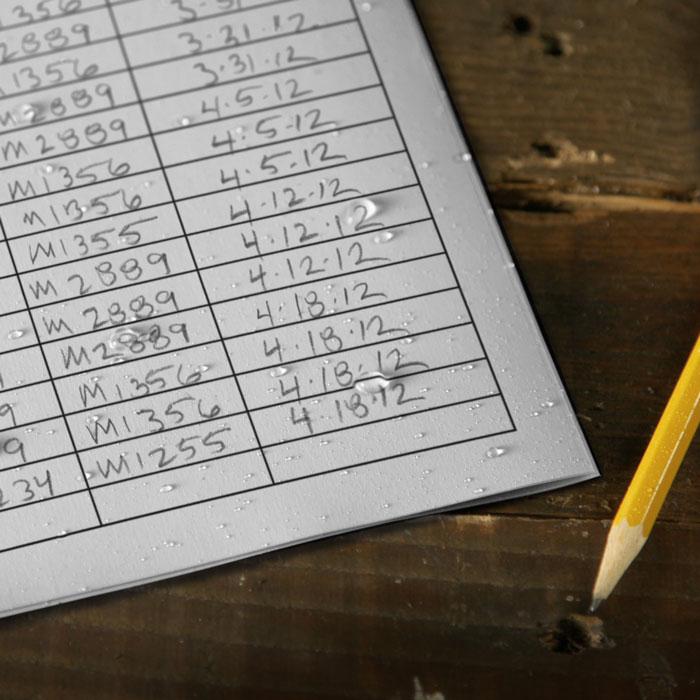 1356
2889 3-31
1356 3.31.12
M2889 3.31.12
M2889 4.5.12
M1356 4.5.12
M1356 4.5.12
M1355 4.12.12
M2889 4.12.12
M2889 4.12.12
M2889 4.18.12
9 M1356 4.18.12
9 M1356 4.18.12
234 M1255 4.18.12